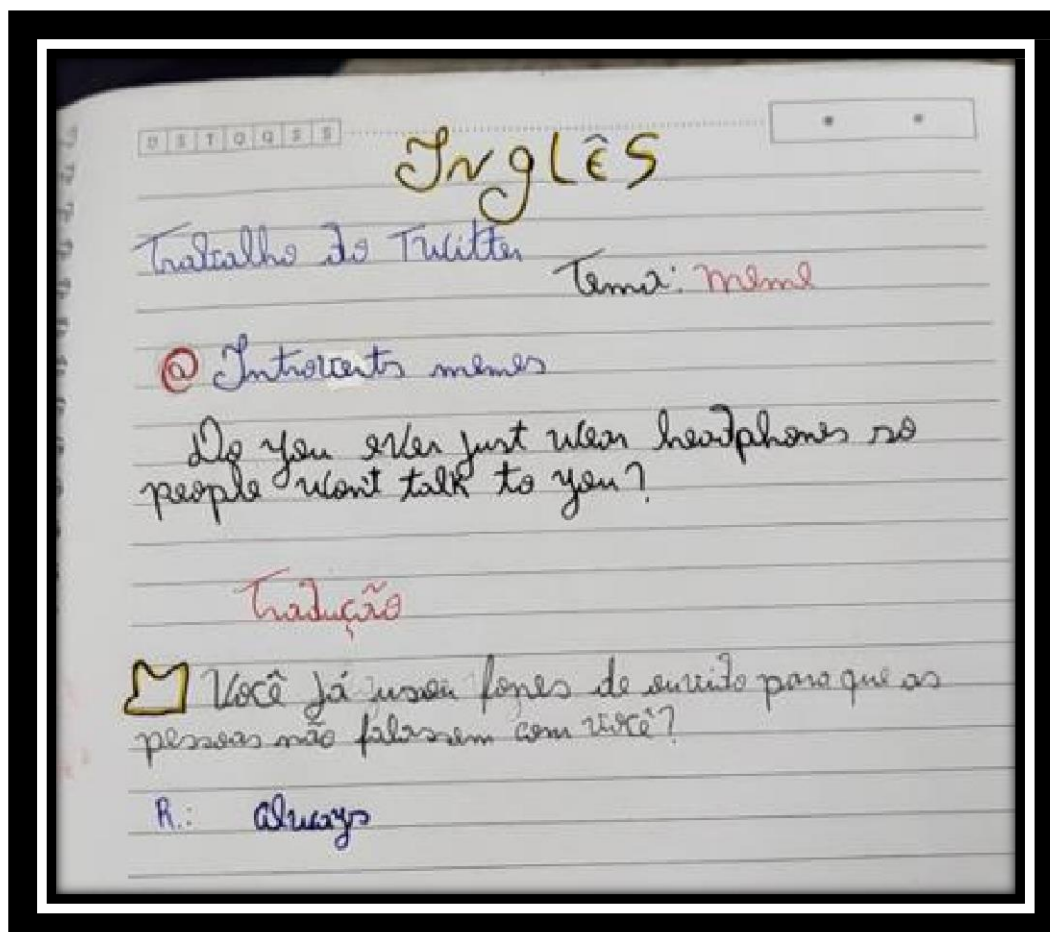 D S T Q Q S S
Inglês
Trabalho do Twitter
Tema: meme
@ Introverts memes
Do you ever just wear headphones so
people wont talk to you?
Tradução
Você já usou fones de ouvido para que as
pessoas não falassem com você?
R.: always